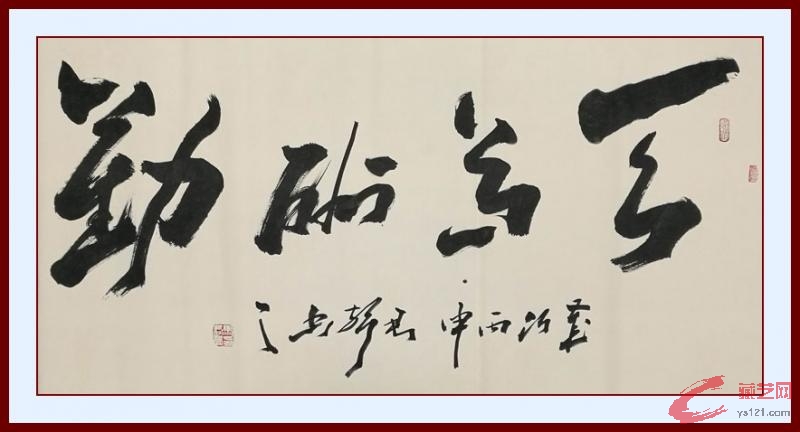 天道酬勤
歲次丙申
书之
藏艺网
ys121.com